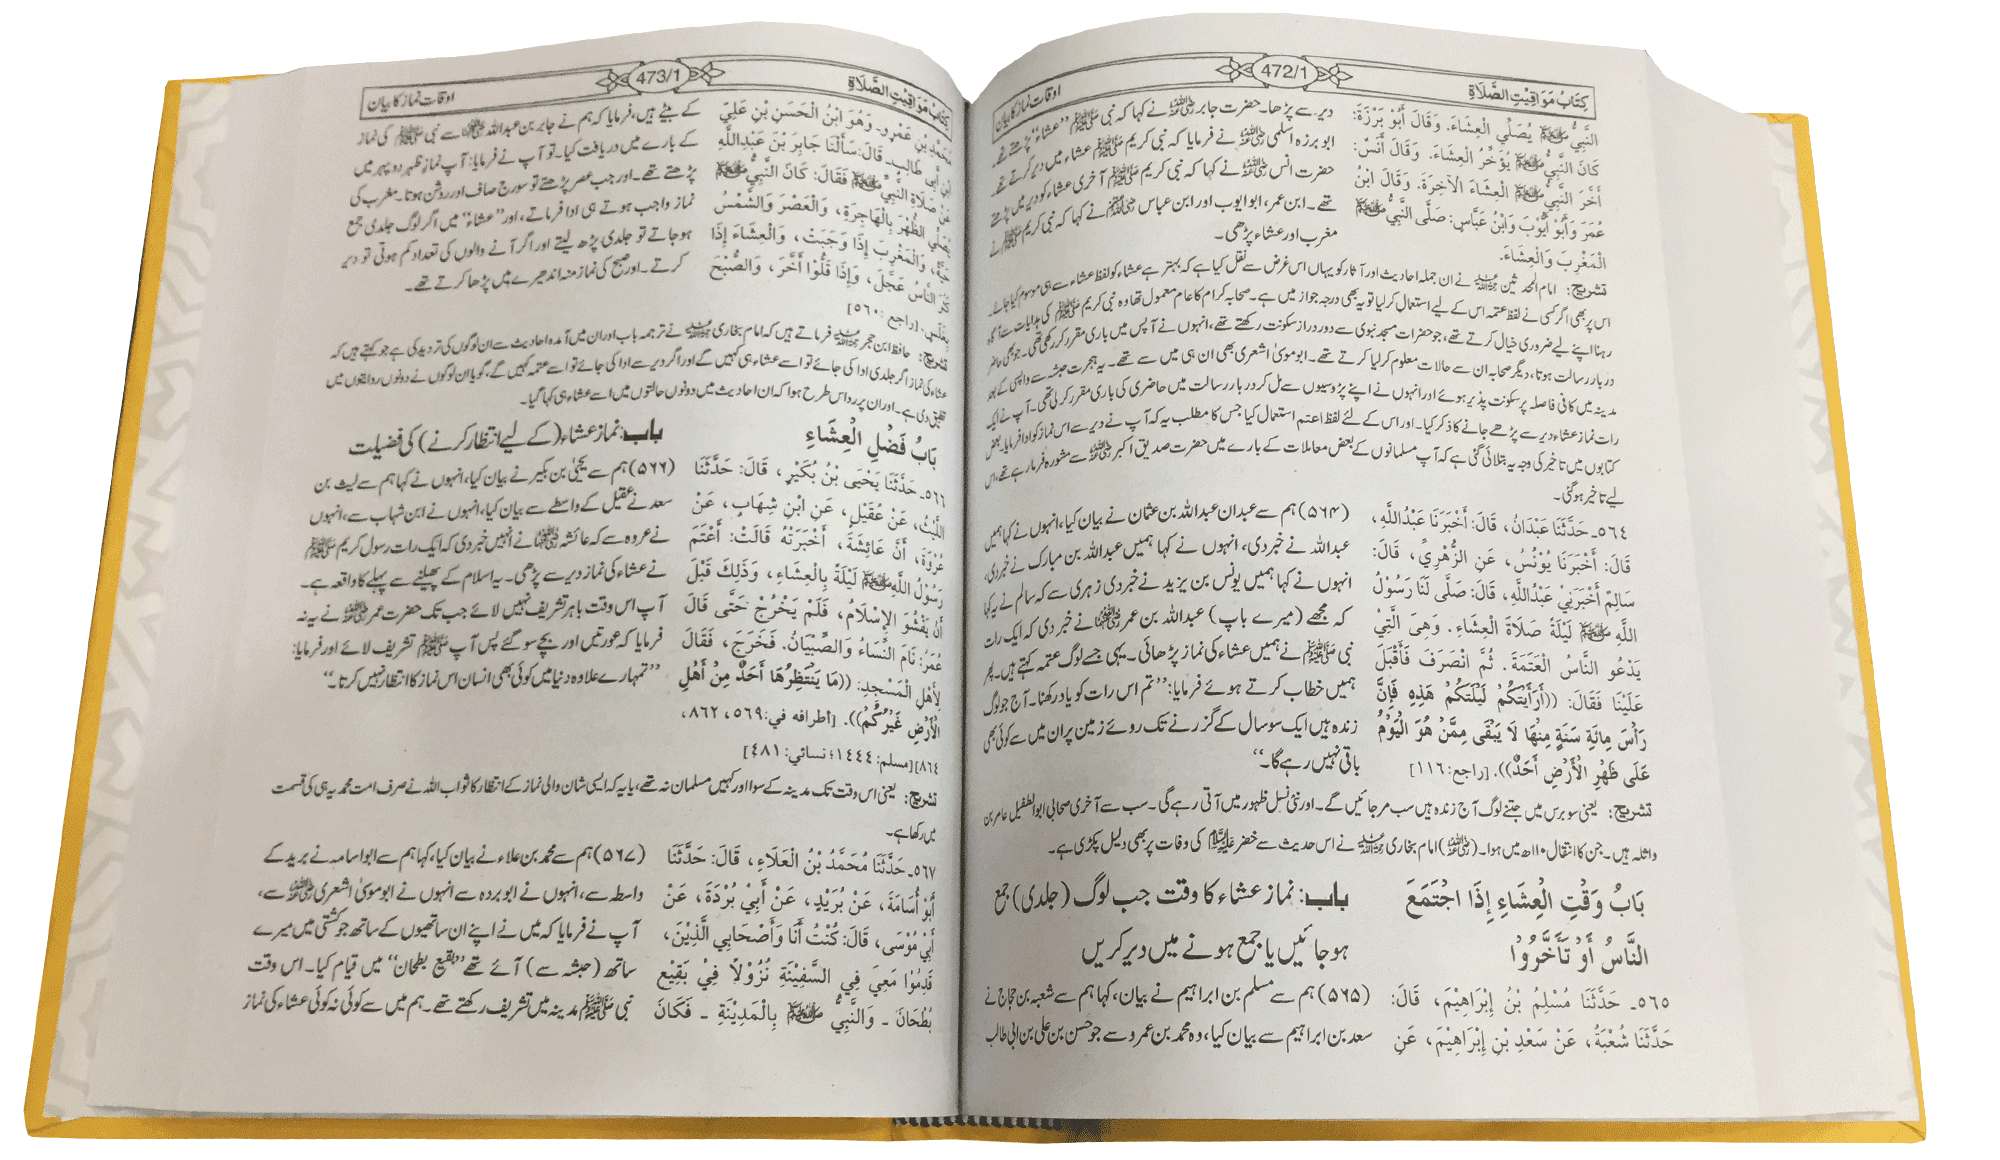 كِتَابُ مَوَاقِيْتِ الصَّلَاةِ
472/1
اوقات نماز کا بیان
النَّبِيُّ ﷺ يُصَلِّي الْعِشَاءَ. وَقَالَ أَبُوْ بَرْزَةَ:
كَانَ النَّبِيُّ ﷺ يُؤَخِّرُ الْعِشَاءَ. وَقَالَ أَنَسٌ:
أَخَّرَ النَّبِيُّ ﷺ الْعِشَاءَ الْآخِرَةَ. وَقَالَ ابْنُ
عُمَرَ وَأَبُوْ أَيُّوْبَ وَابْنُ عَبَّاسٍ: صَلَّى النَّبِيُّ ﷺ
الْمَغْرِبَ وَالْعِشَاءَ.
دیر سے پڑھا۔ حضرت جابر رضی اللہ عنہ نے کہا کہ نبی ﷺ ”عشاء“ پڑھتے تھے۔
ابو برزہ اسلمی رضی اللہ عنہ نے فرمایا کہ نبی کریم ﷺ عشاء میں دیر کرتے تھے۔
حضرت انس رضی اللہ عنہ نے کہا کہ نبی کریم ﷺ آخری عشاء کو دیر میں پڑھتے
تھے۔ ابن عمر، ابو ایوب اور ابن عباس رضی اللہ عنہم نے کہا کہ نبی کریم ﷺ نے
مغرب اور عشاء پڑھی۔
تشریح: امام المحدثین رحمہ اللہ نے ان جملہ احادیث اور آثار کو یہاں اس غرض سے نقل کیا ہے کہ بہتر ہے عشاء کو لفظ عشاء سے ہی موسوم کیا جائے۔
اس پر بھی اگر کسی نے لفظ عتمہ اس کے لیے استعمال کر لیا تو یہ بھی درجہ جواز میں ہے۔ صحابہ کرام کا عام معمول تھا وہ نبی کریم ﷺ کی ہدایات سے آگاہ
رہنا اپنے لیے ضروری خیال کرتے تھے، جو حضرات مسجد نبوی سے دور دراز سکونت رکھتے تھے، انہوں نے آپس میں باری مقرر کر رکھی تھی۔ جو بھی حاضر
دربار رسالت ہوتا، دیگر صحابہ ان سے حالات معلوم کر لیا کرتے تھے۔ ابو موسیٰ اشعری بھی ان ہی میں سے تھے۔ یہ ہجرت حبشہ سے واپسی کے بعد
مدینہ میں کافی فاصلہ پر سکونت پذیر ہوئے اور انہوں نے اپنے پڑوسیوں سے مل کر دربار رسالت میں حاضری کی باری مقرر کر لی تھی۔ آپ نے ایک
رات نماز عشاء دیر سے پڑھے جانے کا ذکر کیا۔ اور اس کے لئے لفظ اعتم استعمال کیا جس کا مطلب یہ کہ آپ نے دیر سے اس نماز کو ادا فرمایا۔ بعض
کتابوں میں تاخیر کی وجہ یہ بتلائی گئی ہے کہ آپ مسلمانوں کے بعض معاملات کے بارے میں حضرت صدیق اکبر رضی اللہ عنہ سے مشورہ فرما رہے تھے، اس
لیے تاخیر ہو گئی۔
٥٦٤۔ حَدَّثَنَا عَبْدَانُ، قَالَ: أَخْبَرَنَا عَبْدُاللَّهِ،
قَالَ: أَخْبَرَنَا يُوْنُسُ، عَنِ الزُّهْرِيِّ، قَالَ:
سَالِمٌ أَخْبَرَنِيْ عَبْدُاللَّهِ، قَالَ: صَلَّى لَنَا رَسُوْلُ
اللَّهِ ﷺ لَيْلَةً صَلَاةَ الْعِشَاءِ. وَهِيَ الَّتِيْ
يَدْعُو النَّاسُ الْعَتَمَةَ. ثُمَّ انْصَرَفَ فَأَقْبَلَ
عَلَيْنَا فَقَالَ: ((أَرَأَيْتَكُمْ لَيْلَتَكُمْ هَذِهِ فَإِنَّ
رَأْسَ مِائَةِ سَنَةٍ مِنْهَا لَا يَبْقَى مِمَّنْ هُوَ الْيَوْمَ
عَلَى ظَهْرِ الْأَرْضِ أَحَدٌ)). [راجع: ١١٦]
(۵۶۴) ہم سے عبدان عبداللہ بن عثمان نے بیان کیا، انہوں نے کہا ہمیں
عبداللہ نے خبر دی، انہوں نے کہا ہمیں عبداللہ بن مبارک نے خبر دی،
انہوں نے کہا ہمیں یونس بن یزید نے خبر دی زہری سے کہ سالم نے یہ کہا
کہ مجھے (میرے باپ) عبداللہ بن عمر رضی اللہ عنہما نے خبر دی کہ ایک رات
نبی ﷺ نے ہمیں عشاء کی نماز پڑھائی۔ یہی جسے لوگ عتمہ کہتے ہیں۔ پھر
ہمیں خطاب کرتے ہوئے فرمایا: ”تم اس رات کو یاد رکھنا۔ آج جو لوگ
زندہ ہیں ایک سو سال کے گزرنے تک روئے زمین پر ان میں سے کوئی بھی
باقی نہیں رہے گا۔“
تشریح: یعنی سو برس میں جتنے لوگ آج زندہ ہیں سب مر جائیں گے۔ اور نئی نسل ظہور میں آتی رہے گی۔ سب سے آخری صحابی ابو الطفیل عامر بن
واثلہ ہیں۔ جن کا انتقال ۱۱۰ھ میں ہوا۔ (رضی اللہ عنہ) امام بخاری رحمہ اللہ نے اس حدیث سے خضر علیہ السلام کی وفات پر بھی دلیل پکڑی ہے۔
بَابُ وَقْتِ الْعِشَاءِ إِذَا اجْتَمَعَ
النَّاسُ أَوْ تَأَخَّرُوْا
باب: نماز عشاء کا وقت جب لوگ (جلدی) جمع
ہو جائیں یا جمع ہونے میں دیر کریں
٥٦٥۔ حَدَّثَنَا مُسْلِمُ بْنُ إِبْرَاهِيْمَ، قَالَ:
حَدَّثَنَا شُعْبَةُ، عَنْ سَعْدِ بْنِ إِبْرَاهِيْمَ، عَنْ
(۵۶۵) ہم سے مسلم بن ابراہیم نے بیان، کہا ہم سے شعبہ بن حجاج نے
سعد بن ابراہیم سے بیان کیا، وہ محمد بن عمرو سے جو حسن بن علی بن ابی طالب
كِتَابُ مَوَاقِيْتِ الصَّلَاةِ
473/1
اوقات نماز کا بیان
مُحَمَّدِ بْنِ عَمْرٍو۔ وَهُوَ ابْنُ الْحَسَنِ بْنِ عَلِيِّ
ابْنِ أَبِي طَالِبٍ۔ قَالَ: سَأَلْنَا جَابِرَ بْنَ عَبْدِاللَّهِ
عَنْ صَلَاةِ النَّبِيِّ ﷺ فَقَالَ: كَانَ النَّبِيُّ ﷺ
يُصَلِّي الظُّهْرَ بِالْهَاجِرَةِ، وَالْعَصْرَ وَالشَّمْسُ
حَيَّةٌ، وَالْمَغْرِبَ إِذَا وَجَبَتْ، وَالْعِشَاءَ إِذَا
كَثُرَ النَّاسُ عَجَّلَ، وَإِذَا قَلُّوْا أَخَّرَ، وَالصُّبْحَ
بِغَلَسٍ. [راجع: ٥٦٠]
کے بیٹے ہیں، فرمایا کہ ہم نے جابر بن عبداللہ رضی اللہ عنہما سے نبی ﷺ کی نماز
کے بارے میں دریافت کیا۔ تو آپ نے فرمایا: آپ نماز ظہر دوپہر میں
پڑھتے تھے۔ اور جب عصر پڑھتے تو سورج صاف اور روشن ہوتا۔ مغرب کی
نماز واجب ہوتے ہی ادا فرماتے، اور ”عشاء“ میں اگر لوگ جلدی جمع
ہو جاتے تو جلدی پڑھ لیتے اور اگر آنے والوں کی تعداد کم ہوتی تو دیر
کرتے۔ اور صبح کی نماز منہ اندھیرے میں پڑھا کرتے تھے۔
تشریح: حافظ ابن حجر رحمہ اللہ فرماتے ہیں کہ امام بخاری رحمہ اللہ نے ترجمہ باب اور ان میں آمدہ احادیث سے ان لوگوں کی تردید کی ہے جو کہتے ہیں کہ
عشاء کی نماز اگر جلدی ادا کی جائے تو اسے عشاء ہی کہیں گے اور اگر دیر سے ادا کی جائے تو اسے عتمہ کہیں گے، گویا ان لوگوں نے دونوں روایتوں میں
تطبیق دی ہے۔ اور ان پر رد اس طرح ہوا کہ ان احادیث میں دونوں حالتوں میں اسے عشاء ہی کہا گیا۔
بَابُ فَضْلِ الْعِشَاءِ
باب: نماز عشاء (کے لیے انتظار کرنے) کی فضیلت
٥٦٦۔ حَدَّثَنَا يَحْيَى بْنُ بُكَيْرٍ، قَالَ: حَدَّثَنَا
اللَّيْثُ، عَنْ عُقَيْلٍ، عَنِ ابْنِ شِهَابٍ، عَنْ
عُرْوَةَ، أَنَّ عَائِشَةَ، أَخْبَرَتْهُ قَالَتْ: أَعْتَمَ
رَسُوْلُ اللَّهِ ﷺ لَيْلَةً بِالْعِشَاءِ، وَذَلِكَ قَبْلَ
أَنْ يَفْشُوَ الْإِسْلَامُ، فَلَمْ يَخْرُجْ حَتَّى قَالَ
عُمَرُ: نَامَ النِّسَاءُ وَالصِّبْيَانُ. فَخَرَجَ، فَقَالَ
لِأَهْلِ الْمَسْجِدِ: ((مَا يَنْتَظِرُهَا أَحَدٌ مِنْ أَهْلِ
الْأَرْضِ غَيْرُكُمْ)). [أطرافه في: ٥٦٩، ٨٦٢،
٨٦٤] [مسلم: ١٤٤٤؛ نسائي: ٤٨١]
(۵۶۶) ہم سے یحییٰ بن بکیر نے بیان کیا، انہوں نے کہا ہم سے لیث بن
سعد نے عقیل کے واسطے سے بیان کیا، انہوں نے ابن شہاب سے، انہوں
نے عروہ سے کہ عائشہ رضی اللہ عنہا نے انہیں خبر دی کہ ایک رات رسول کریم ﷺ
نے عشاء کی نماز دیر سے پڑھی۔ یہ اسلام کے پھیلنے سے پہلے کا واقعہ ہے۔
آپ اس وقت باہر تشریف نہیں لائے جب تک حضرت عمر رضی اللہ عنہ نے یہ نہ
فرمایا کہ عورتیں اور بچے سو گئے پس آپ ﷺ تشریف لائے اور فرمایا:
”تمہارے علاوہ دنیا میں کوئی بھی انسان اس نماز کا انتظار نہیں کرتا۔“
تشریح: یعنی اس وقت تک مدینہ کے سوا اور کہیں مسلمان نہ تھے، یا یہ کہ ایسی شان والی نماز کے انتظار کا ثواب اللہ نے صرف امت محمدیہ ہی کی قسمت
میں رکھا ہے۔
٥٦٧۔ حَدَّثَنَا مُحَمَّدُ بْنُ الْعَلَاءِ، قَالَ: حَدَّثَنَا
أَبُوْ أُسَامَةَ، عَنْ بُرَيْدٍ، عَنْ أَبِيْ بُرْدَةَ، عَنْ
أَبِيْ مُوْسَى، قَالَ: كُنْتُ أَنَا وَأَصْحَابِي الَّذِيْنَ،
قَدِمُوْا مَعِيَ فِي السَّفِيْنَةِ نُزُوْلاً فِيْ بَقِيْعِ
بُطْحَانَ ۔ وَالنَّبِيُّ ﷺ بِالْمَدِيْنَةِ ۔ فَكَانَ
(۵۶۷) ہم سے محمد بن علاء نے بیان کیا، کہا ہم سے ابو اسامہ نے برید کے
واسطہ سے، انہوں نے ابو بردہ سے انہوں نے ابو موسیٰ اشعری رضی اللہ عنہ سے،
آپ نے فرمایا کہ میں نے اپنے ان ساتھیوں کے ساتھ جو کشتی میں میرے
ساتھ (حبشہ سے) آئے تھے ”بقیع بطحان“ میں قیام کیا۔ اس وقت
نبی ﷺ مدینہ میں تشریف رکھتے تھے۔ ہم میں سے کوئی نہ کوئی عشاء کی نماز